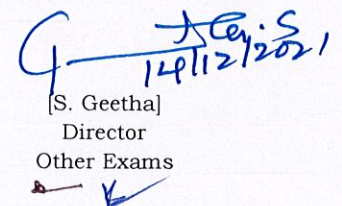 14/12/2021
[S. Geetha]
Director
Other Exams